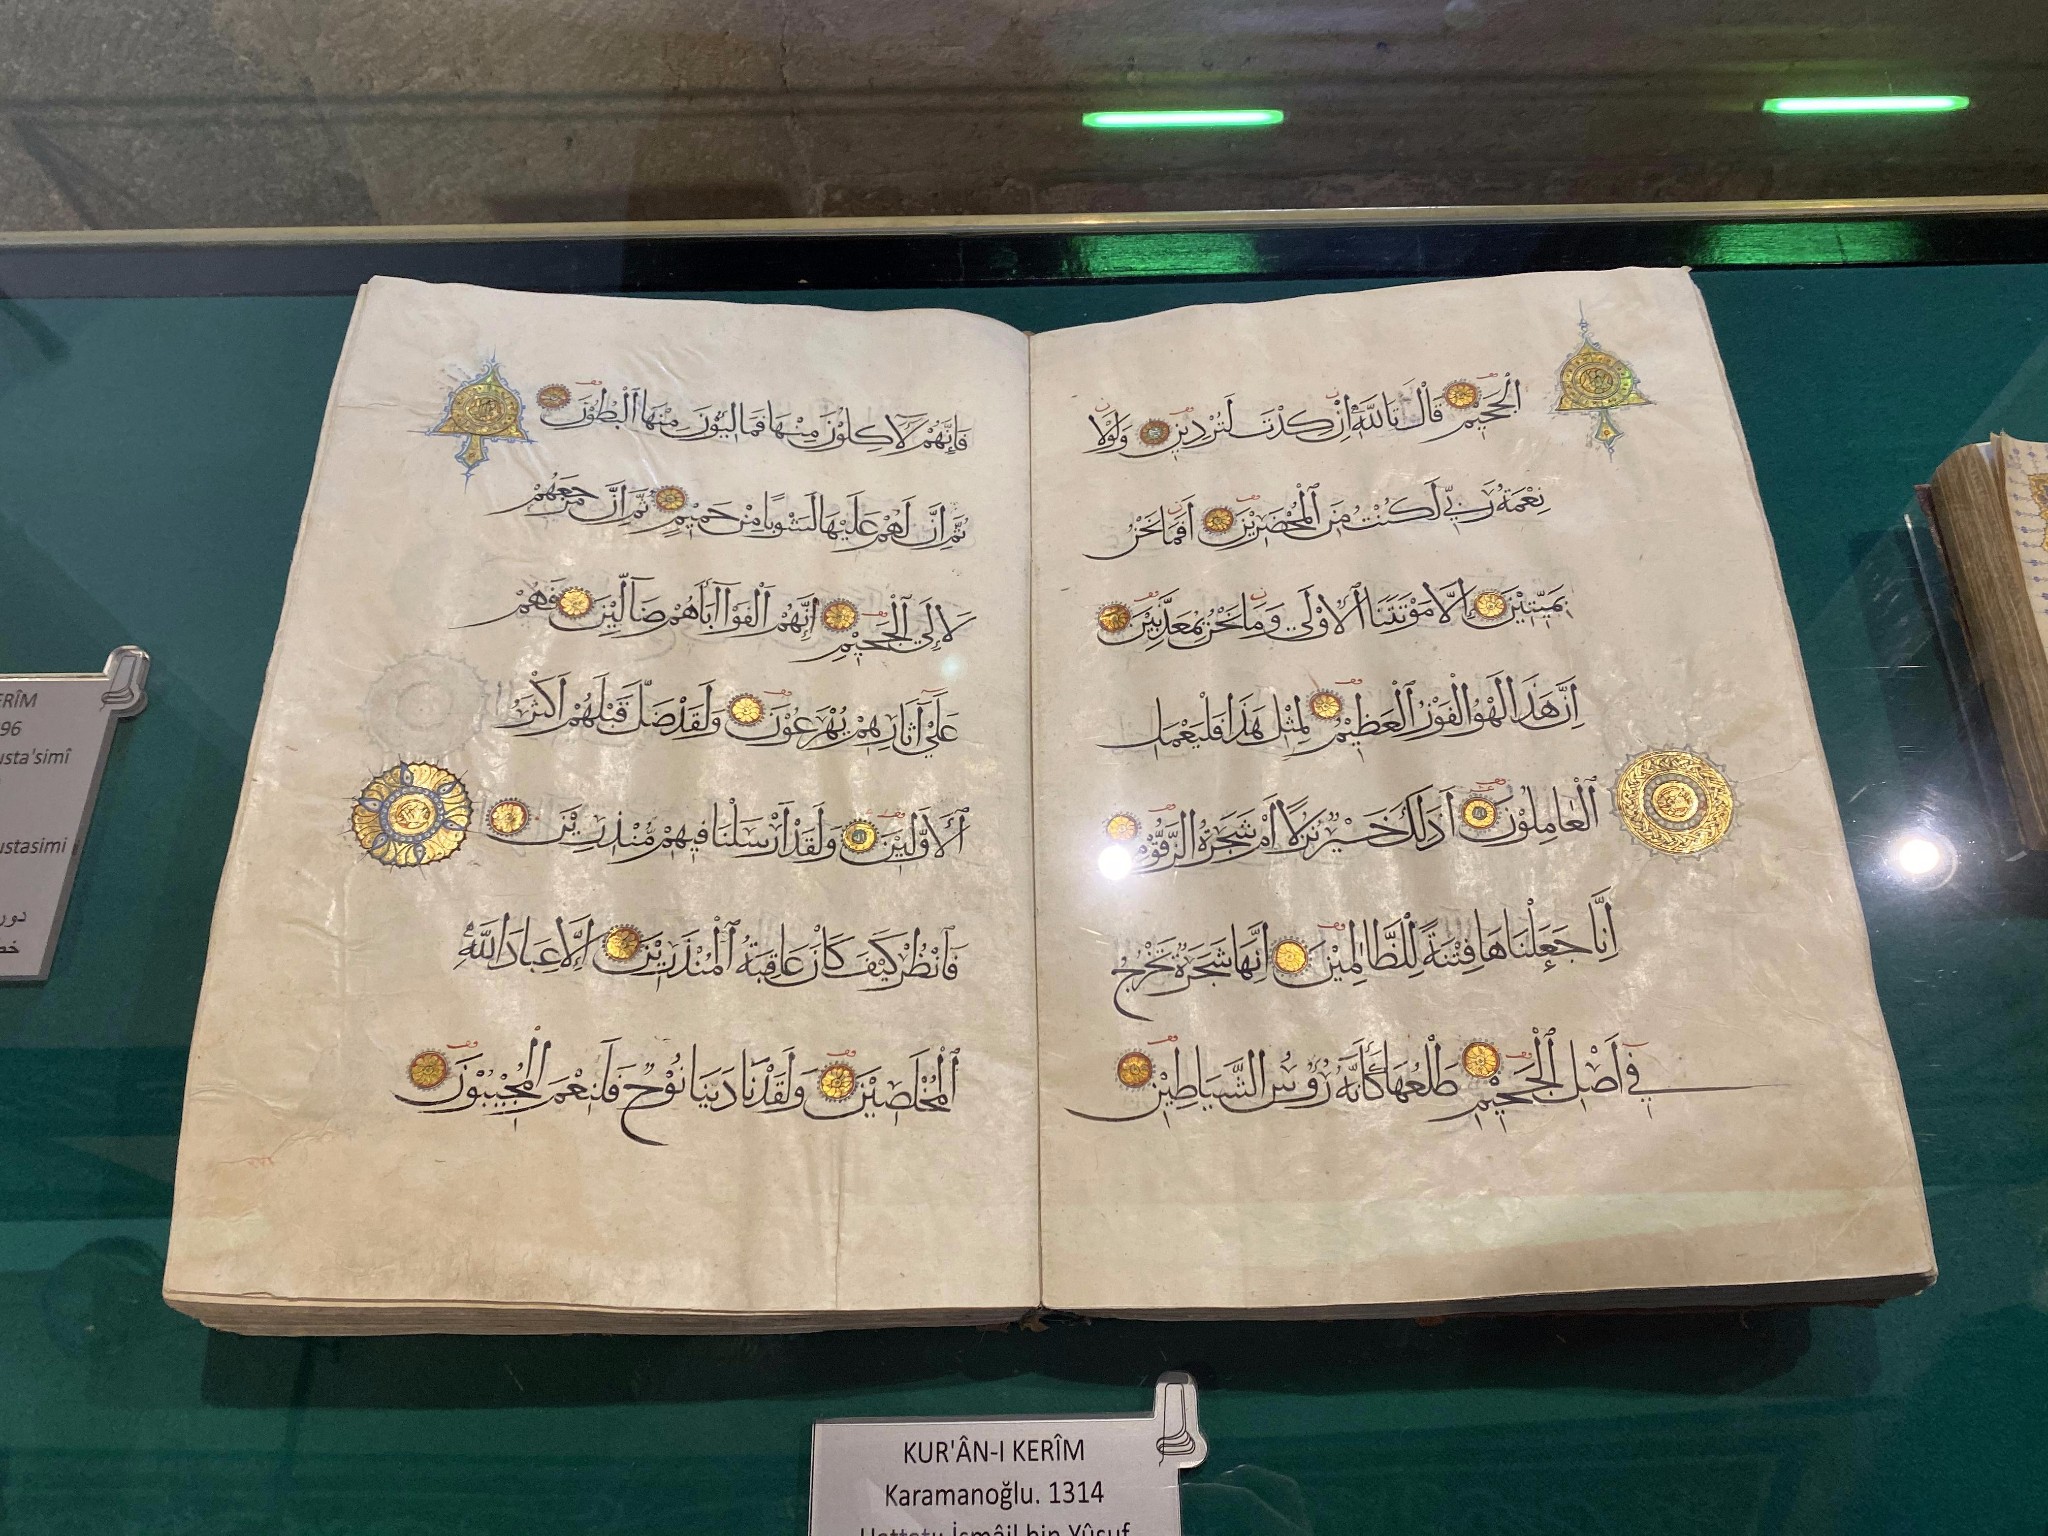 الْجَحِيمِ قَالَ تَاللَّهِ إِنْ كِدْتَ لَتُرْدِينِ وَلَوْلَا
نِعْمَةُ رَبِّي لَكُنْتُ مِنَ الْمُحْضَرِينَ أَفَمَا نَحْنُ
بِمَيِّتِينَ إِلَّا مَوْتَتَنَا الْأُولَى وَمَا نَحْنُ بِمُعَذَّبِينَ
إِنَّ هَذَا لَهُوَ الْفَوْزُ الْعَظِيمُ لِمِثْلِ هَذَا فَلْيَعْمَلِ
الْعَامِلُونَ أَذَلِكَ خَيْرٌ نُزُلًا أَمْ شَجَرَةُ الزَّقُّومِ
إِنَّا جَعَلْنَاهَا فِتْنَةً لِلظَّالِمِينَ إِنَّهَا شَجَرَةٌ تَخْرُجُ
فِي أَصْلِ الْجَحِيمِ طَلْعُهَا كَأَنَّهُ رُؤُسُ الشَّيَاطِينِ
فَإِنَّهُمْ لَآكِلُونَ مِنْهَا فَمَالِئُونَ مِنْهَا الْبُطُونَ
ثُمَّ إِنَّ لَهُمْ عَلَيْهَا لَشَوْبًا مِنْ حَمِيمٍ ثُمَّ إِنَّ مَرْجِعَهُمْ
لَإِلَى الْجَحِيمِ إِنَّهُمْ أَلْفَوْا آبَاءَهُمْ ضَالِّينَ فَهُمْ
عَلَى آثَارِهِمْ يُهْرَعُونَ وَلَقَدْ ضَلَّ قَبْلَهُمْ أَكْثَرُ
الْأَوَّلِينَ وَلَقَدْ أَرْسَلْنَا فِيهِمْ مُنْذِرِينَ
فَانْظُرْ كَيْفَ كَانَ عَاقِبَةُ الْمُنْذَرِينَ إِلَّا عِبَادَ اللَّهِ
الْمُخْلَصِينَ وَلَقَدْ نَادَيْنَا نُوحٌ فَلَنِعْمَ الْمُجِيبُونَ
KUR'ÂN-I KERÎM
Karamanoğlu. 1314
Hattatı İsmâil bin Yûsuf
ERÎM
96
usta'simî
ustasimi